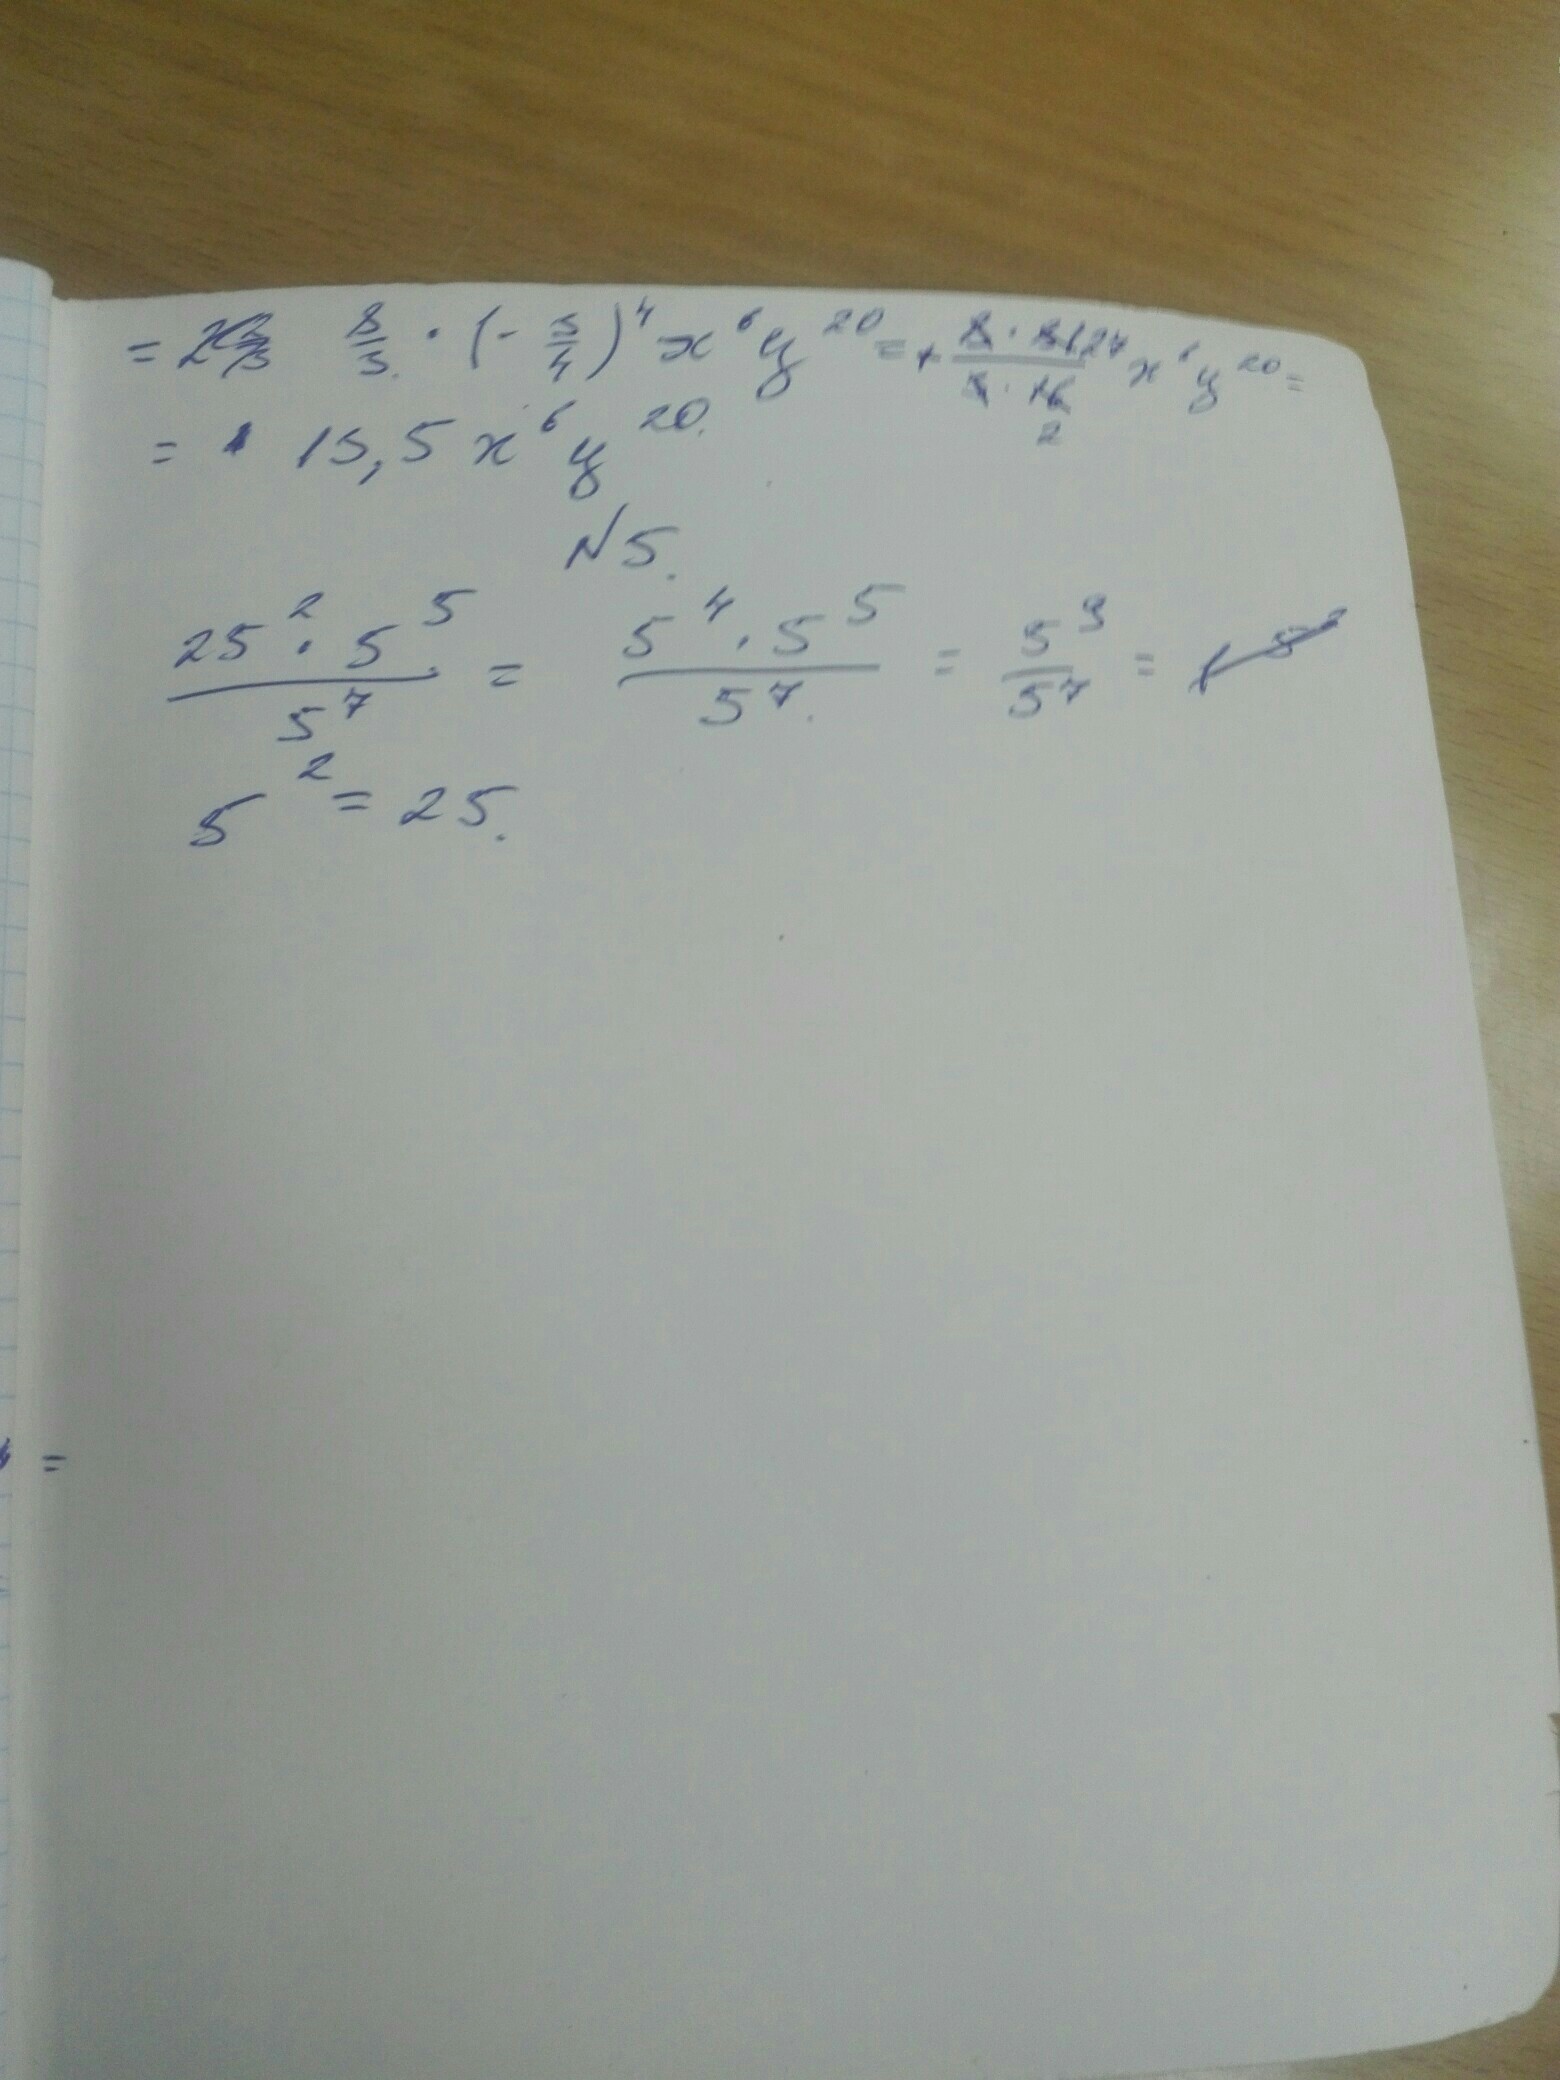 = 8/3 · (- 3/4)⁴ x⁶y²⁰ = + 8 · 81 27 / 3 · 16 2 x⁶y²⁰ =
= 15,5 x⁶y²⁰.
N5.
25² · 5⁵ / 5⁷ = 5⁴ · 5⁵ / 5⁷. = 5⁹ / 5⁷ =
5² = 25.
=